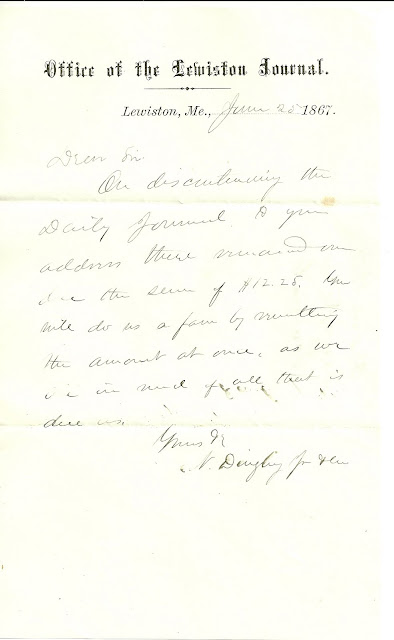 Office of the Lewiston Journal.
Lewiston, Me., June 25 1867.
Dear Sir
On discontinuing the
Daily Journal to your
address there remained
due the sum of $12.25. You
will do us a favor by remitting
the amount at once, as we
are in need of all that is
due us.
Yours &c
N. Dingley Jr &